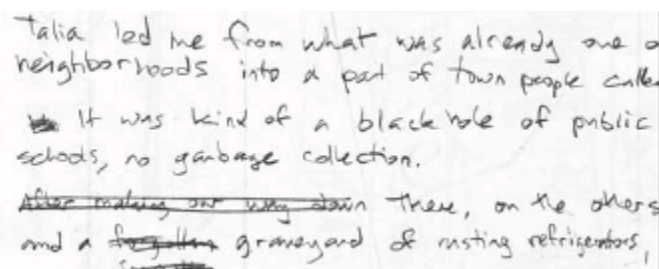 Talia led me from what was already one o
neighborhoods into a part of town people calle
It was kind of a black hole of public
schools, no garbage collection.
After making our way down there, on the others
and a forgotten graveyard of rusting refrigerators,